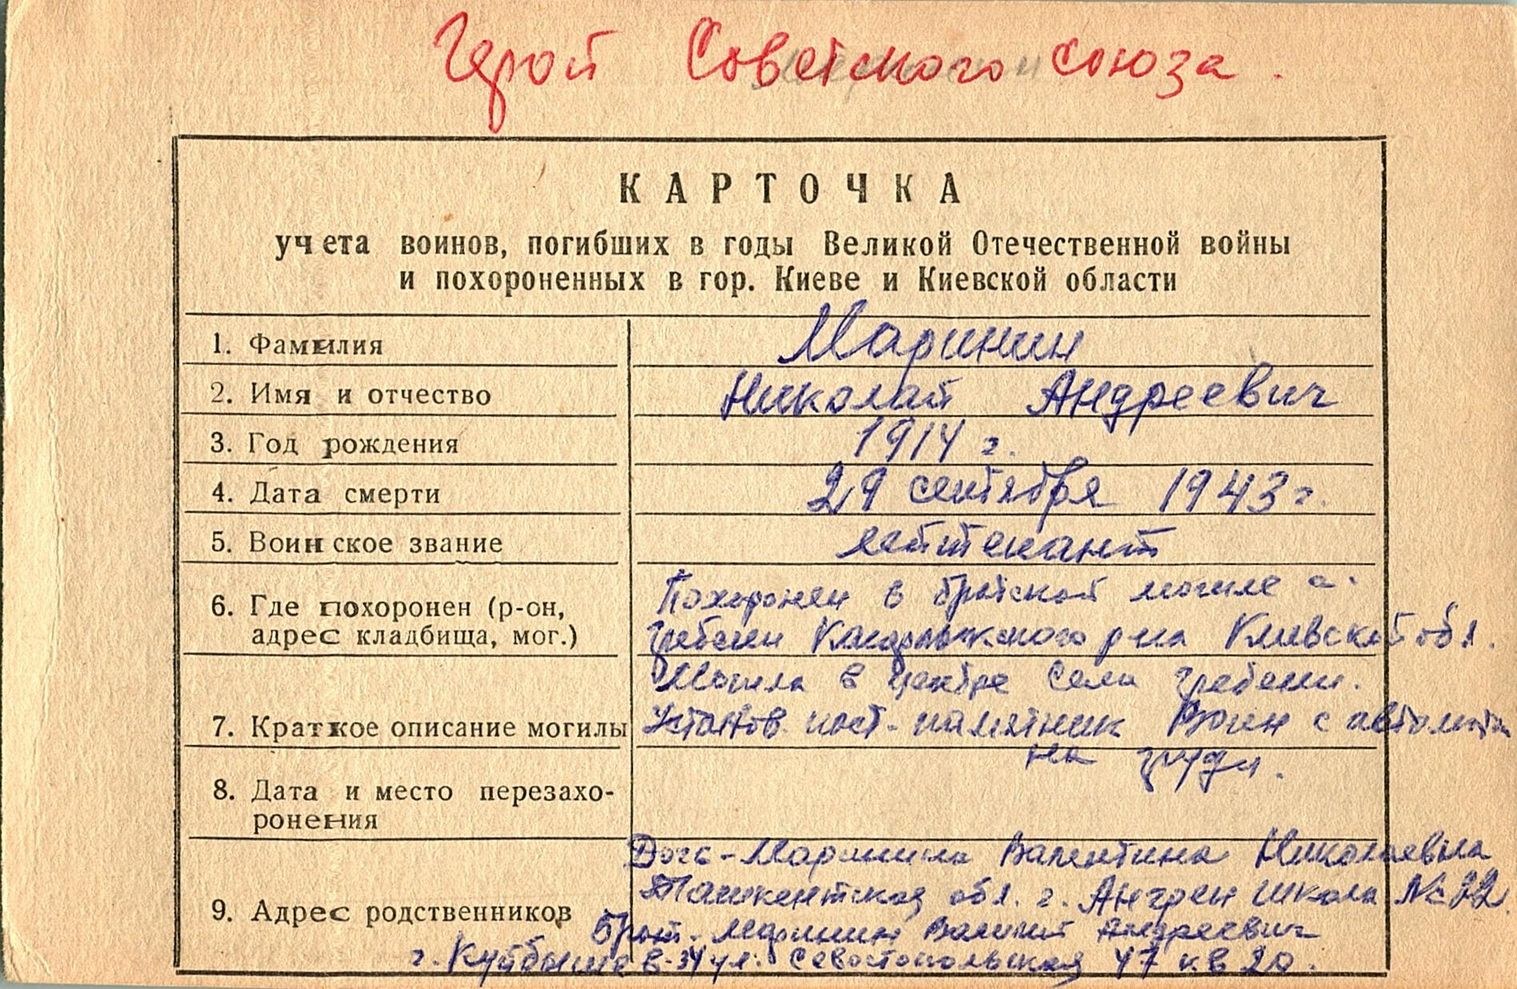 Герой Советского Союза.
КАРТОЧКА
учета воинов, погибших в годы Великой Отечественной войны
и похороненных в гор. Киеве и Киевской области
1. Фамилия Маринин
2. Имя и отчество Николай Андреевич
3. Год рождения 1914 г.
4. Дата смерти 29 сентября 1943 г.
5. Воинское звание лейтенант
6. Где похоронен (р-он, Похоронен в братской могиле с.
адрес кладбища, мог.) Гребени Кагарлыкского р-на Киевской обл.
Могила в центре села Гребени.
7. Краткое описание могилы Установ. пост.-памятник Воин с автоматом
на груди.
8. Дата и место перезахо-
ронения
Дочь-Маринина Валентина Николаевна
Ташкентская обл. г. Ангрен школа №22
9. Адрес родственников
Брат-Маринин Андреевич
г. Куйбышев-34 ул. Севостопольская 47 кв 20.